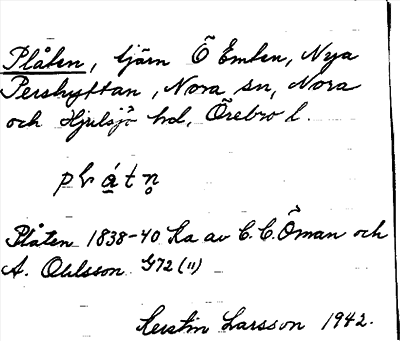 Plåten, tjärn Ö Emlen, Nya
Pershyttan, Nora sn, Nora
och Hjulsjö hd, Örebro l.
Plåten 1838-40 Ka av C. C. Öman och
A. Ohlsson G72 (11)
Kerstin Larsson 1942.